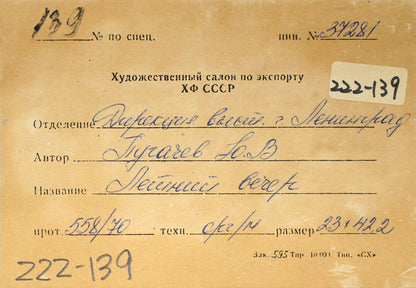 139 № по спец. инв. № 37281
Художественный салон по экспорту
ХФ СССР
222-139
Отделение Дирекция выст. г. Ленинград
Автор Пугачев Ю.В
Название Летний вечер
прот. 558/70 техн. орг/м размер 23×42,2
Зак. 595 Тир 10 000. Тип. «СХ»
222-139